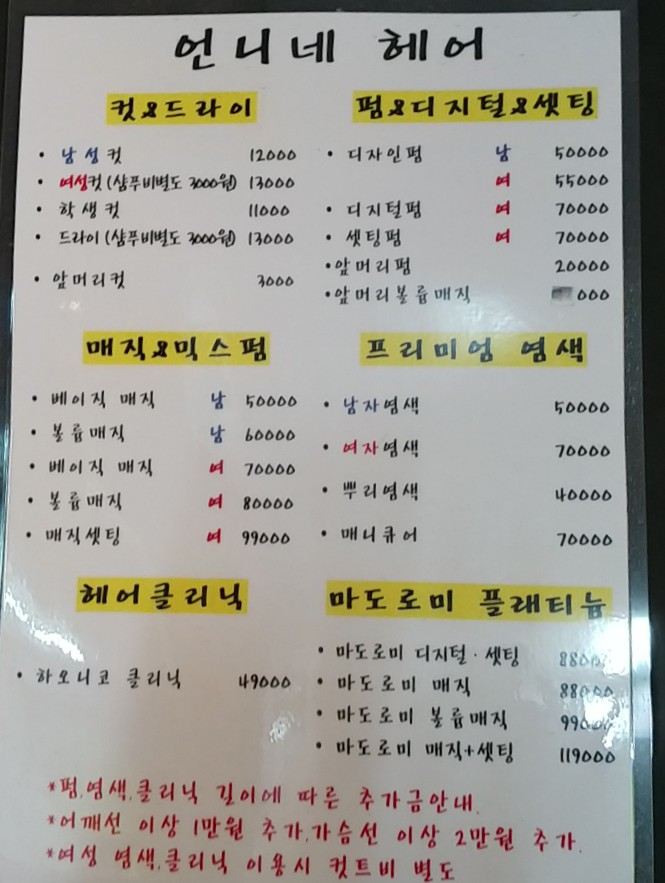 언니네 헤어
컷&드라이
• 남성컷 12000
• 여성컷 (샴푸비별도 3000원) 13000
• 학생컷 11000
• 드라이 (샴푸비별도 3000원) 13000
• 앞머리컷 3000
펌&디지털&셋팅
• 디자인펌 남 50000
여 55000
• 디지털펌 여 70000
• 셋팅펌 여 70000
•앞머리펌 20000
•앞머리볼륨매직 000
매직&믹스펌
• 베이직 매직 남 50000
• 볼륨매직 남 60000
• 베이직 매직 여 70000
• 볼륨매직 여 80000
• 매직셋팅 여 99000
프리미엄 염색
• 남자염색 50000
• 여자염색 70000
• 뿌리염색 40000
• 매니큐어 70000
헤어클리닉
• 하오니코 클리닉 49000
마도로미 플래티늄
• 마도로미 디지털·셋팅 88000
• 마도로미 매직 88000
• 마도로미 볼륨매직 99000
• 마도로미 매직+셋팅 119000
*펌.염색.클리닉 길이에 따른 추가금안내.
*어깨선 이상 1만원 추가.가슴선 이상 2만원 추가.
*여성 염색.클리닉 이용시 컷트비 별도